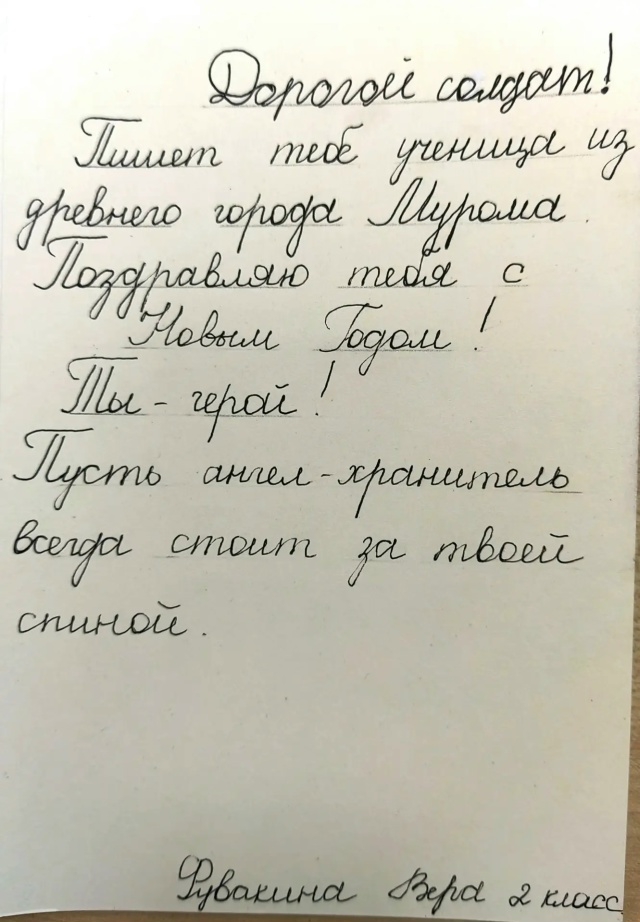 Дорогой солдат!
Пишет тебе ученица из
древнего города Мурома.
Поздравляю тебя с
Новым Годом!
Ты - герой!
Пусть ангел-хранитель
всегда стоит за твоей
спиной.
Фувакина Вера 2 класс